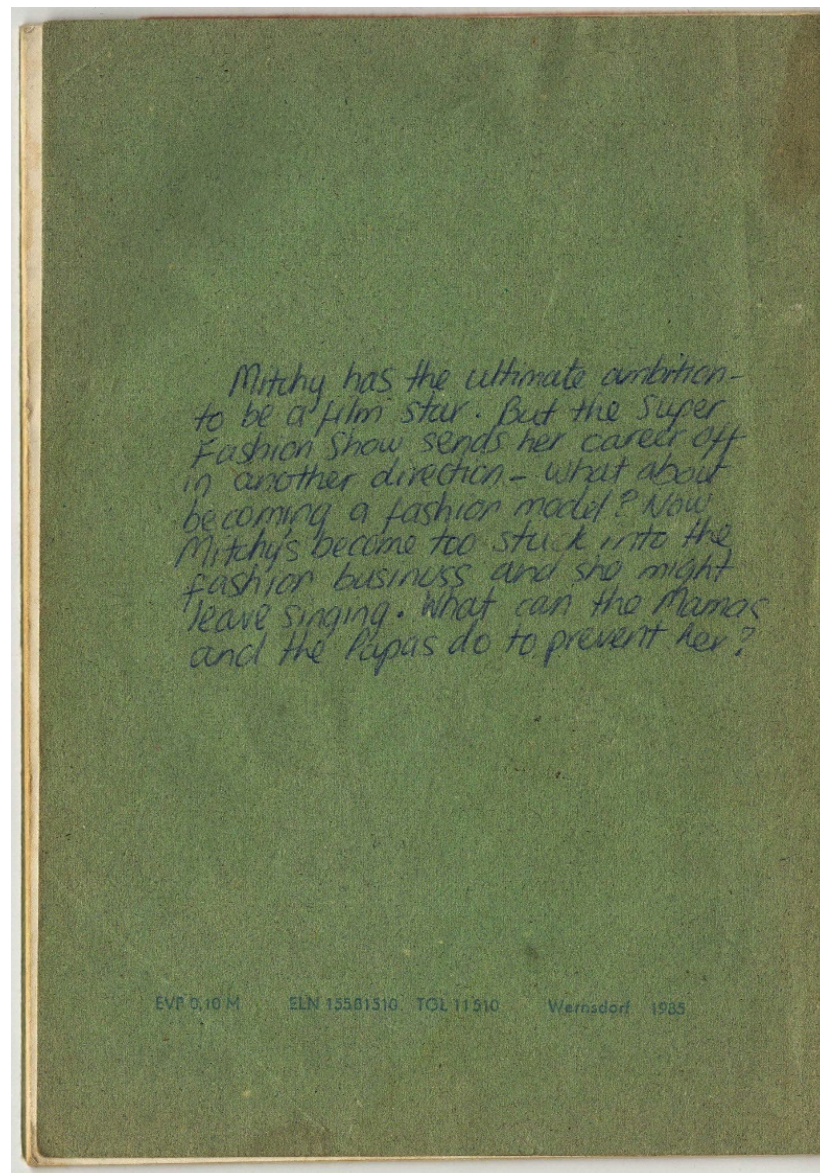 Mitchy has the ultimate ambition-
to be a film star. But the Super
Fashion Show sends her career off
in another direction - what about
becoming a fashion model? Now
Mitchy's become too stuck into the
fashion business and she might
leave singing. What can the Mamas
and the Papas do to prevent her?
EVP 0,10 M ELN 15581510 TGL 11510 Wernsdorf 1985